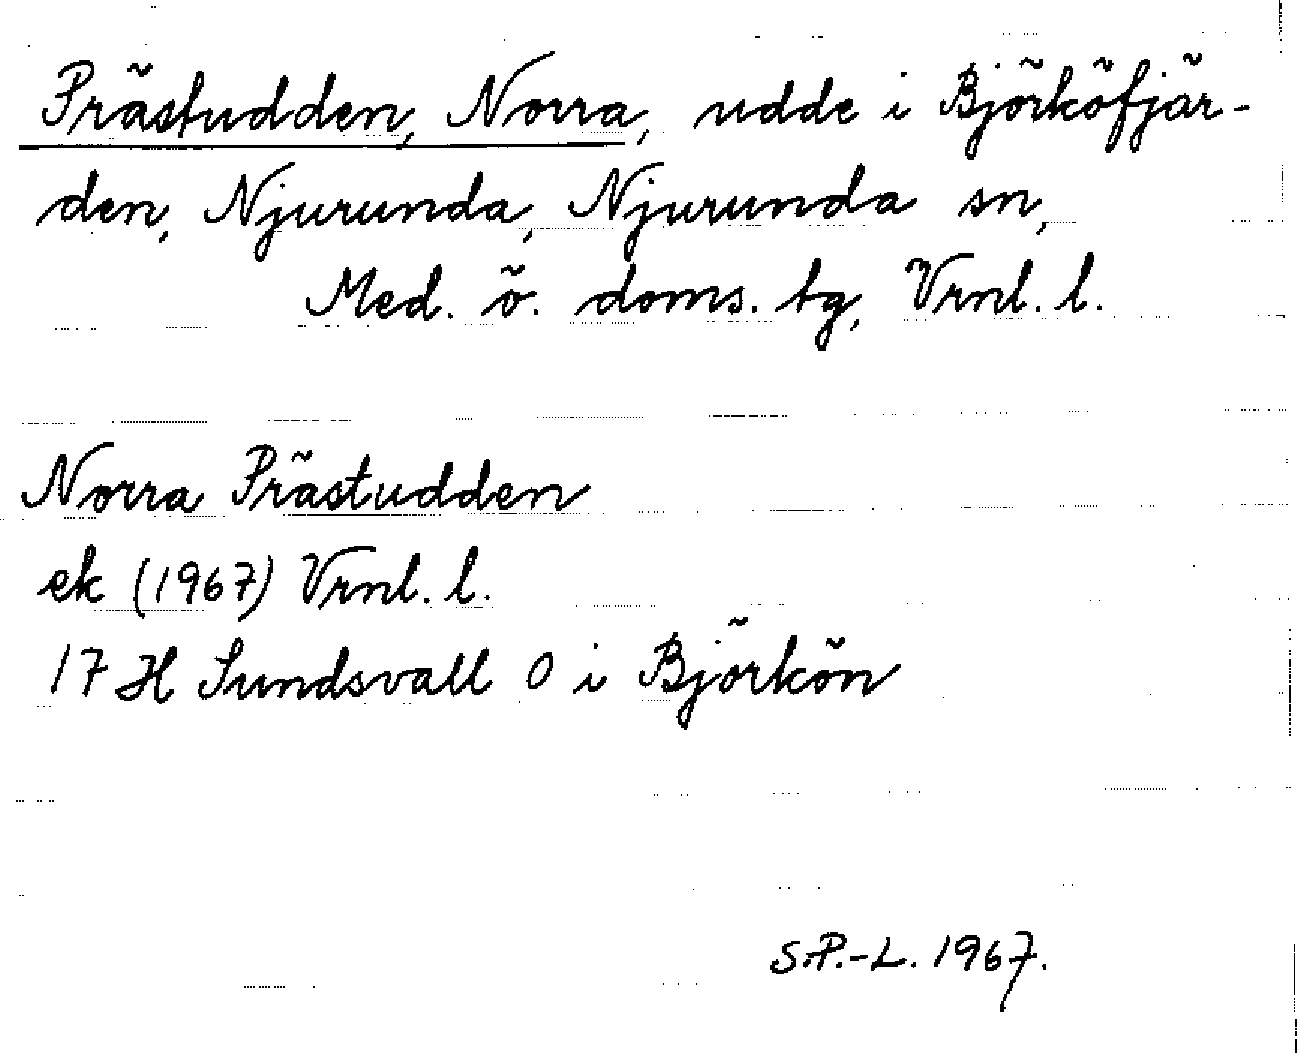 Prästudden, Norra, udde i Björköfjär-
den, Njurunda, Njurunda sn,
Med. ö. doms. tg, Vrnl. l.
Norra Prästudden
ek (1967) Vrnl. l.
17 H Sundsvall O i Björkön
S.P.-L. 1967.